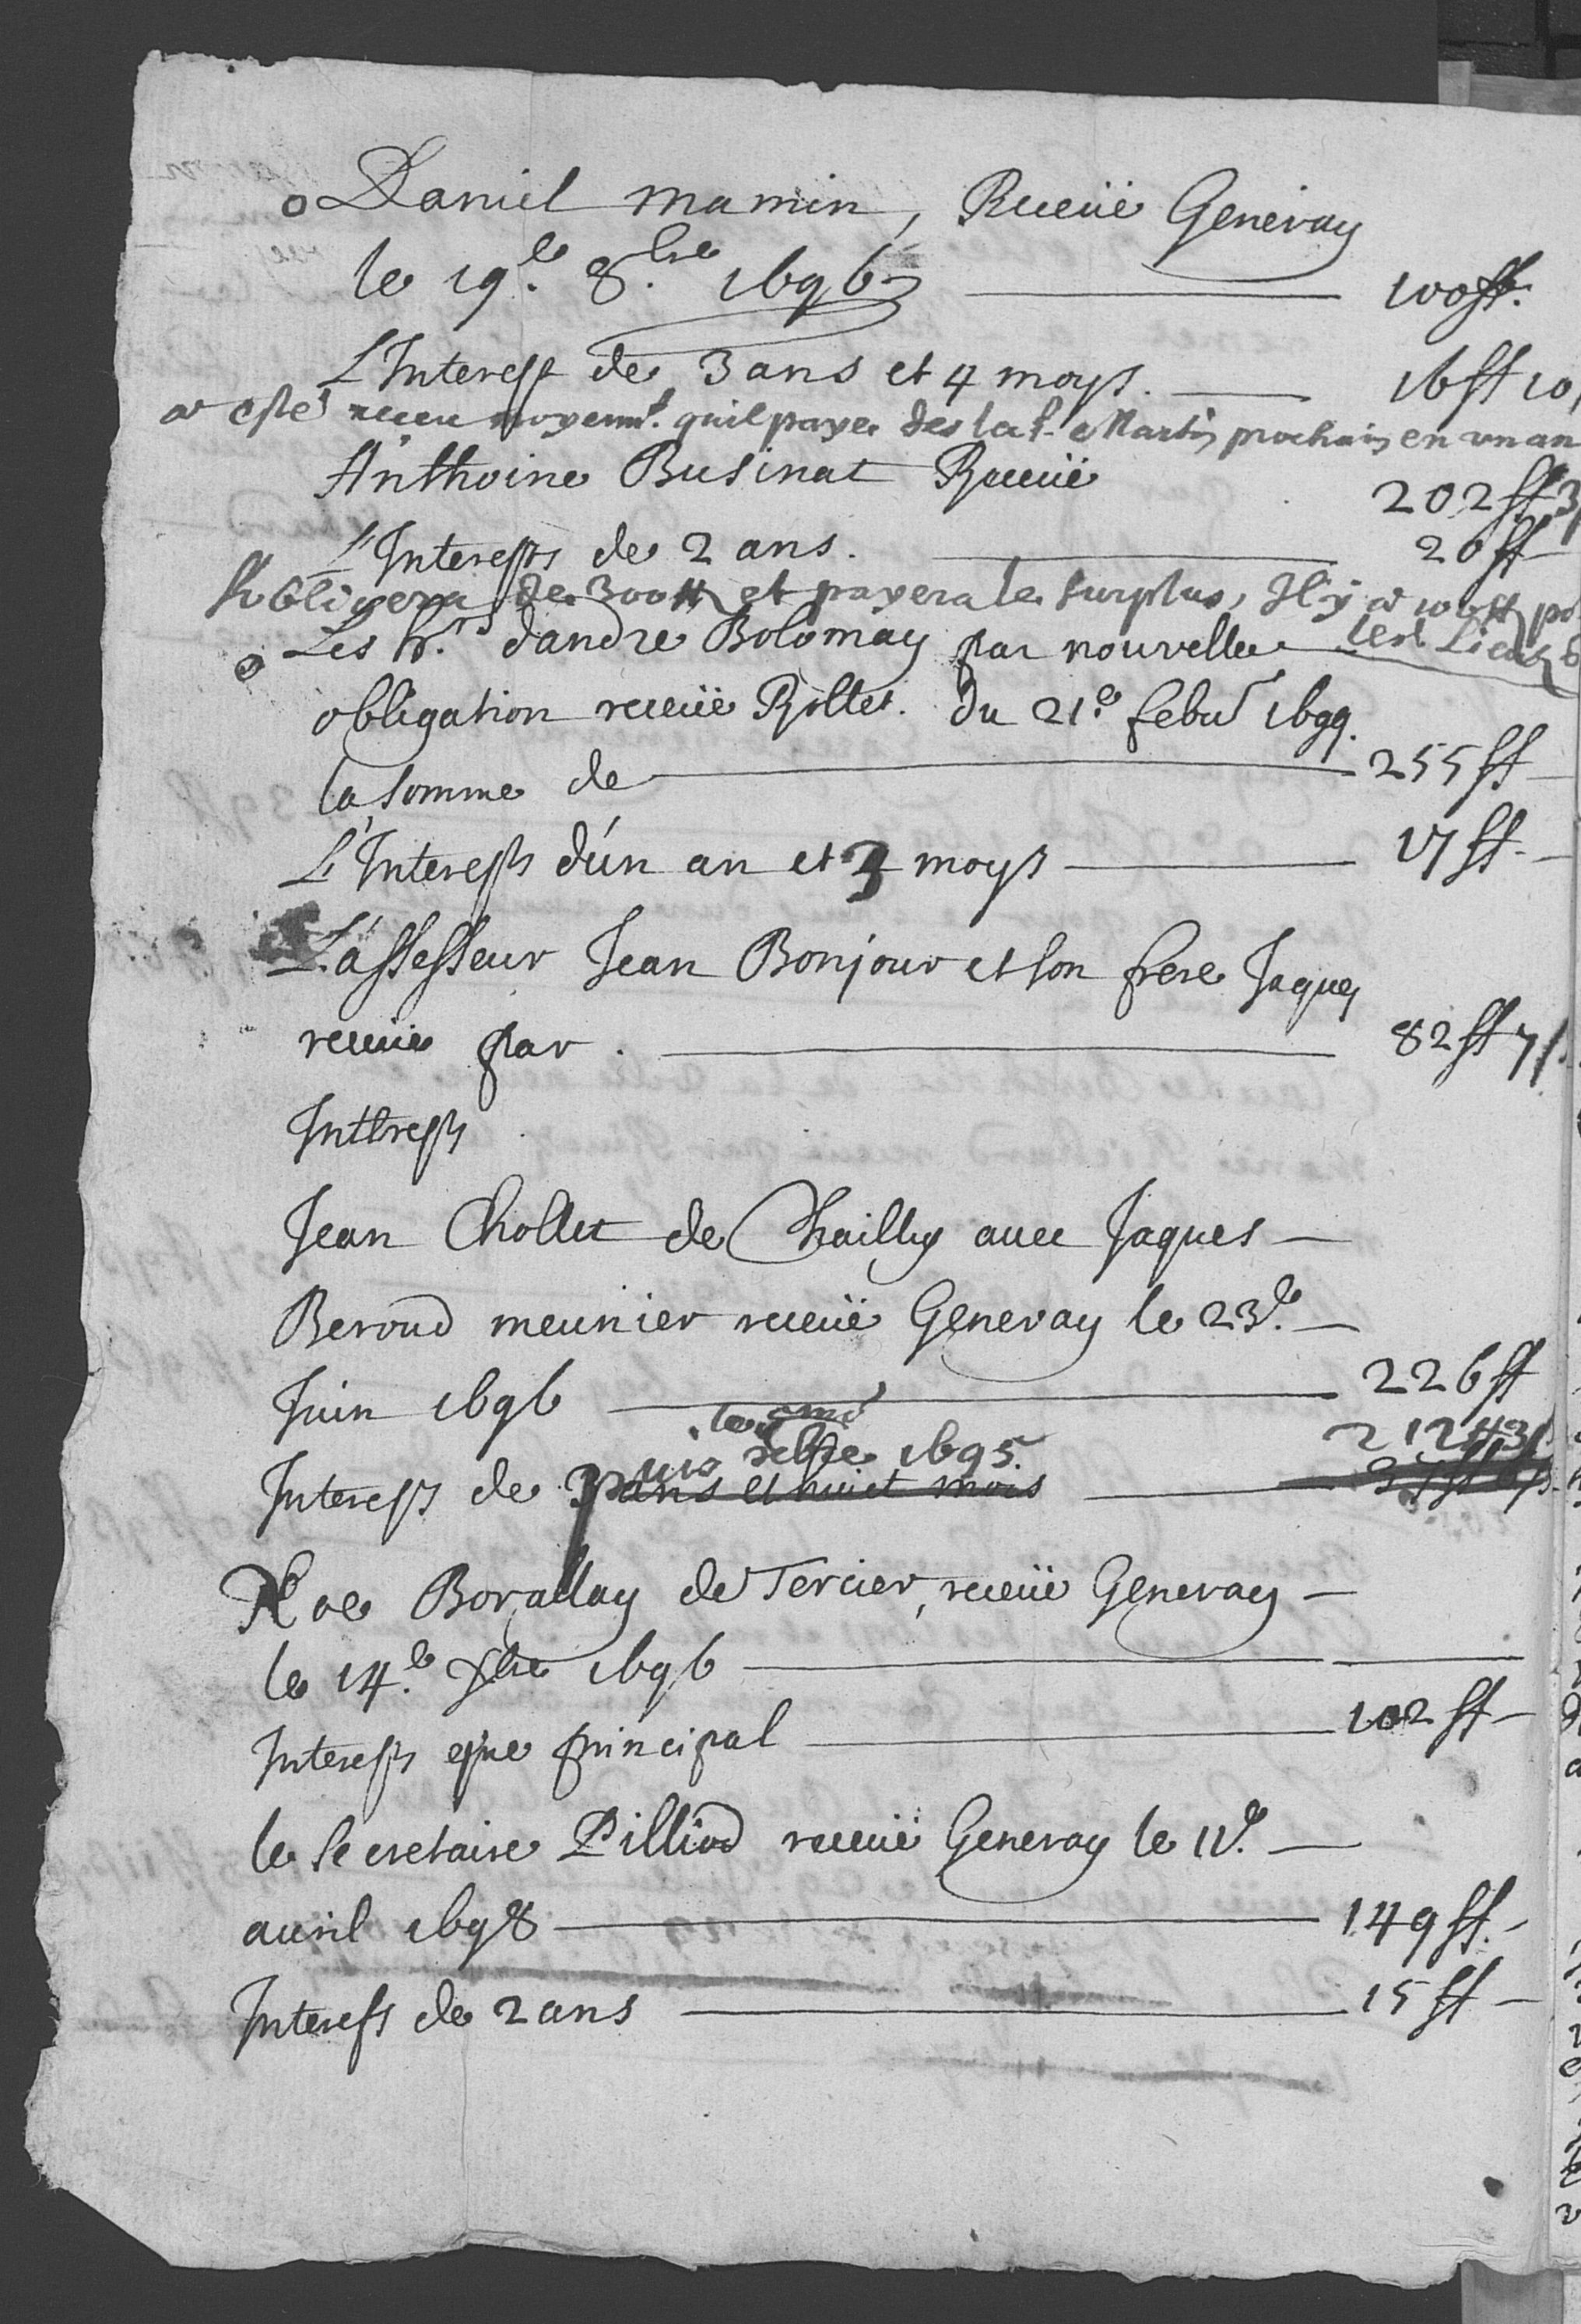 o Daniel mamin, Receüe Genevay
le 19.e 8.bre 1696 100 ff.
L'Interest de 3 ans et 4 moys. 16 ff 10
a esté receu moyennt. quil paye des la St. Martin prochain en un an
Anthoine Businat Receüe 202 ff 3
L'Interests de 2 ans. 20 ff
Sobligera de 300 ff et payera le surplus, Il y a
Les hrs. dandre Bolomay par nouvelle
obligation receüe Rollet. du 21.e febur 1699.
la somme de 255 ff
L'Interests d'un an et 3 moys 17 ff.
L'assesseur Jean Bonjour et son frere Jaques
receüe par. 82 ff 7 s.
Intherests
Jean Chollet de Chailly avec Jaques
Beroud meunier receüe Genevay le 23.e
Juin 1696 226 ff
le 2me
212 ff 3 s
Interests de puis 1695.
ans et huict mois
Noe Borallay de Tercier, receüe Genevay
le 14.e xbre 1696
Interests que principal 102 ff
le Secretaire Pilliod receüe Genevay le 11.e
auril 1698 149 ff.
Interests de 2 ans 15 ff